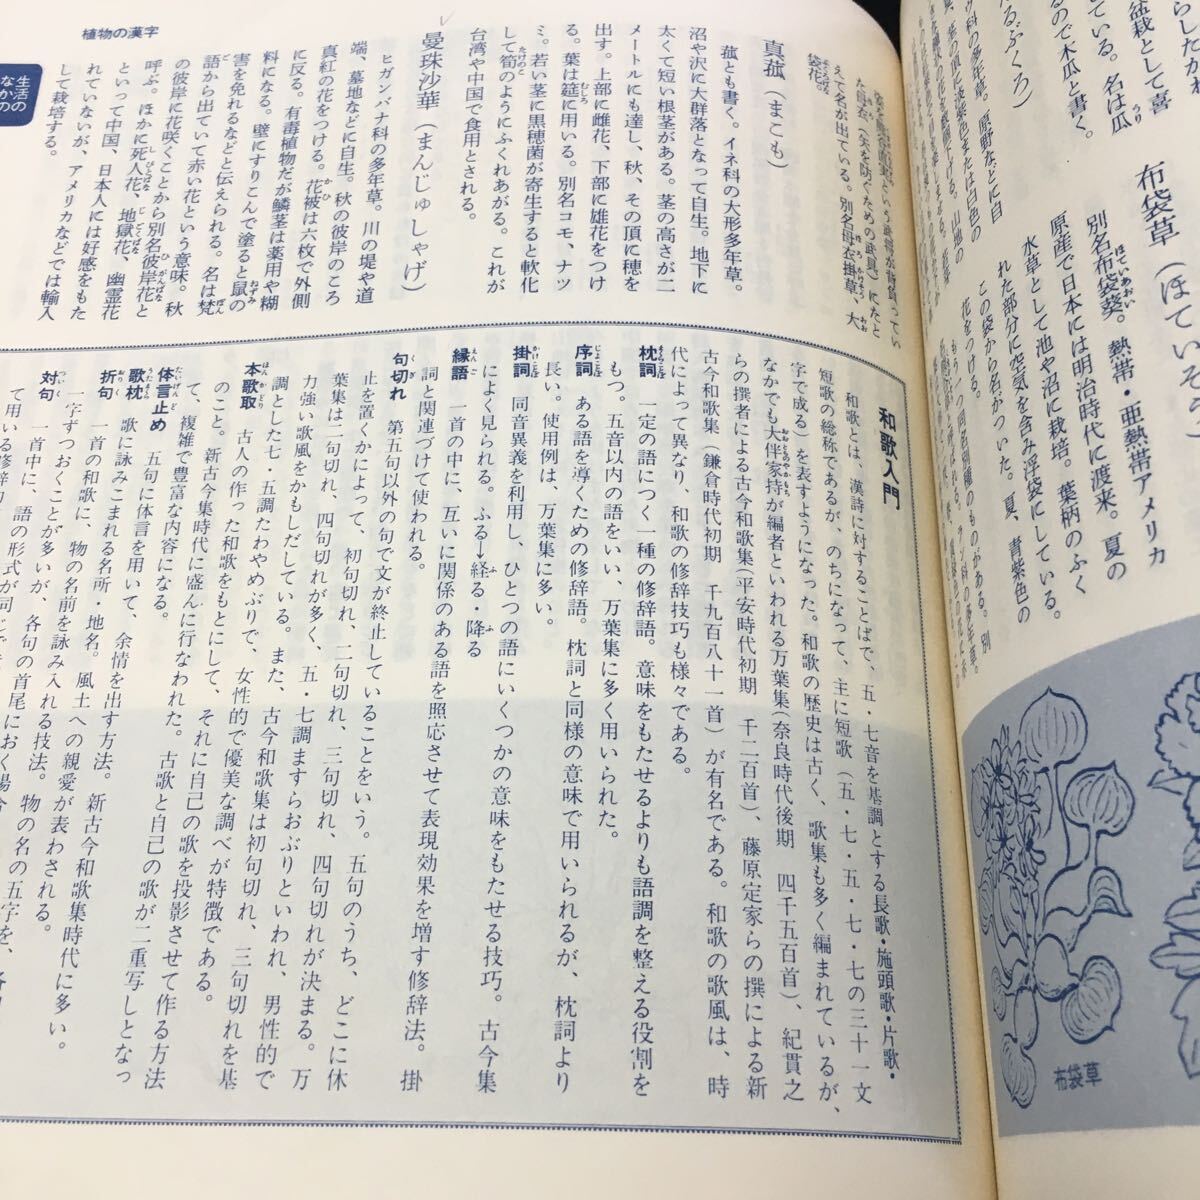 らしたかれ
盆栽として喜
ている。名は瓜
るので木瓜と書く。
布袋草（ほていそう）
別名布袋葵。熱帯・亜熱帯アメリカ
原産で日本には明治時代に渡来。夏の
水草として池や沼に栽培。葉柄のふく
れた部分に空気を含み浮袋にしている。
この袋から名がついた。夏、青紫色の
花をつける。
布袋草
植物の漢字
生活の
なかの
た母衣（矢を防ぐための武具）にたと
えて名が出ている。別名母衣掛草、大
袋花。
真菰（まこも）
菰とも書く。イネ科の大形多年草。
沼や沢に大群落となって自生。地下に
太くて短い根茎がある。茎の高さが二
メートルにも達し、秋、その頂に穂を
出す。上部に雌花、下部に雄花をつけ
る。葉は筵に用いる。別名コモ、ナツ
ミ。若い茎に黒穂菌が寄生すると軟化
して筍のようにふくれあがる。これが
台湾や中国で食用とされる。
曼珠沙華（まんじゅしゃげ）
ヒガンバナ科の多年草。川の堤や道
端、墓地などに自生。秋の彼岸のころ
真紅の花をつける。花被は六枚で外側
に反る。有毒植物だが鱗茎は薬用や糊
料になる。壁にすりこんで塗ると鼠の
害を免れるなどと伝えられる。名は梵
語から出ていて赤い花という意味。秋
の彼岸に花咲くことから別名彼岸花と
呼ぶ。ほかに死人花、地獄花、幽霊花
といって中国、日本人には好感をもた
れていないが、アメリカなどでは輸入
して栽培する。
和歌入門
和歌とは、漢詩に対することばで、五・七音を基調とする長歌・施頭歌・片歌・
短歌の総称であるが、のちになって、主に短歌（五・七・五・七・七の三十一文
字で成る）を表すようになった。和歌の歴史は古く、歌集も多く編まれているが、
なかでも大伴家持が編者といわれる万葉集（奈良時代後期　四千五百首）、紀貫之
らの撰者による古今和歌集（平安時代初期　千二百首）、藤原定家らの撰による新
古今和歌集（鎌倉時代初期　千九百八十一首）が有名である。和歌の歌風は、時
代によって異なり、和歌の修辞技巧も様々である。
枕詞　一定の語につく一種の修辞語。意味をもたせるよりも語調を整える役割を
もつ。五音以内の語をいい、万葉集に多く用いられた。
序詞　ある語を導くための修辞語。枕詞と同様の意味で用いられるが、枕詞より
長い。使用例は、万葉集に多い。
掛詞　同音異義を利用し、ひとつの語にいくつかの意味をもたせる技巧。古今集
によく見られる。ふる→経る・降る
縁語　一首の中に、互いに関係のある語を照応させて表現効果を増す修辞法。掛
詞と関連づけて使われる。
句切れ　第五句以外の句で文が終止していることをいう。五句のうち、どこに休
止を置くかによって、初句切れ、二句切れ、三句切れ、四句切れが決まる。万
葉集は二句切れ、四句切れが多く、五・七調ますらおぶりといわれ、男性的で
力強い歌風をかもしだしている。また、古今和歌集は初句切れ、三句切れを基
調とした七・五調たわやめぶりで、女性的で優美な調べが特徴である。
本歌取　古人の作った和歌をもとにして、それに自己の歌を投影させて作る方法
のこと。新古今集時代に盛んに行なわれた。古歌と自己の歌が二重写しとなっ
て、複雑で豊富な内容になる。
体言止め　五句に体言を用いて、余情を出す方法。新古今和歌集時代に多い。
歌枕　歌に詠みこまれる名所・地名。風土への親愛が表わされる。
折句　一首の和歌に、物の名前を詠み入れる技法。物の名の五字を、各句
一字ずつおくことが多いが、各句の首尾におく場合
対句　一首中に、語の形式が同じで
て用いる修辞